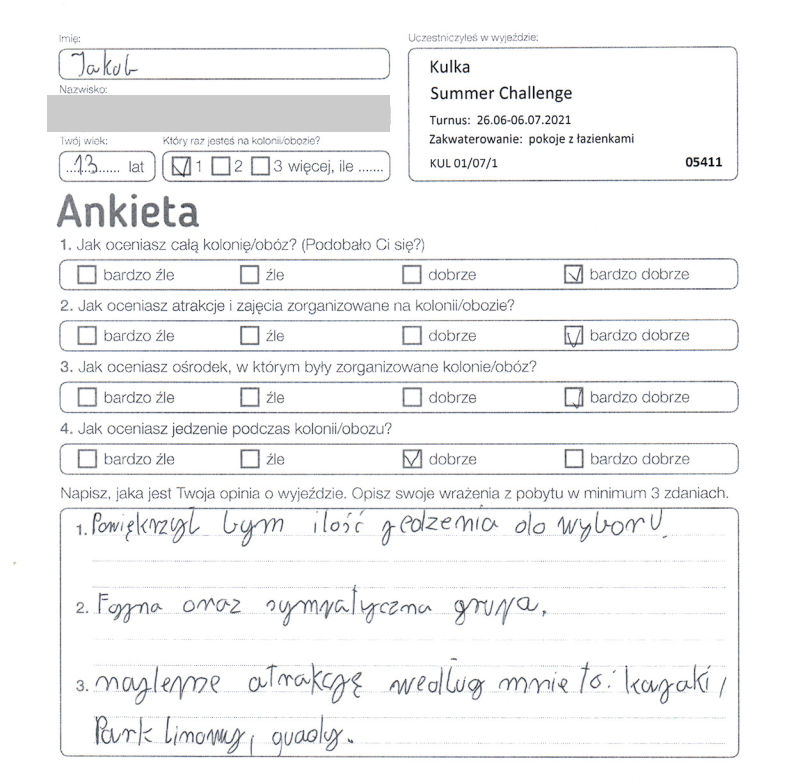 Imię:
Jakub
Uczestniczyłeś w wyjeździe:
Kulka
Summer Challenge
Turnus: 26.06-06.07.2021
Zakwaterowanie: pokoje z łazienkami
KUL 01/07/1 05411
Nazwisko:
Twój wiek:
13 lat
Który raz jesteś na kolonii/obozie?
1 2 3 więcej, ile .......
Ankieta
1. Jak oceniasz całą kolonię/obóz? (Podobało Ci się?)
bardzo źle źle dobrze bardzo dobrze
2. Jak oceniasz atrakcje i zajęcia zorganizowane na kolonii/obozie?
bardzo źle źle dobrze bardzo dobrze
3. Jak oceniasz ośrodek, w którym były zorganizowane kolonie/obóz?
bardzo źle źle dobrze bardzo dobrze
4. Jak oceniasz jedzenie podczas kolonii/obozu?
bardzo źle źle dobrze bardzo dobrze
Napisz, jaka jest Twoja opinia o wyjeździe. Opisz swoje wrażenia z pobytu w minimum 3 zdaniach.
1. Powiękrzył bym ilość jedzenia do wyboru.
2. Fajna oraz sympatyczna grupa.
3. najlepsze atrakcję według mnie to: kajaki,
Park linowy, quady.